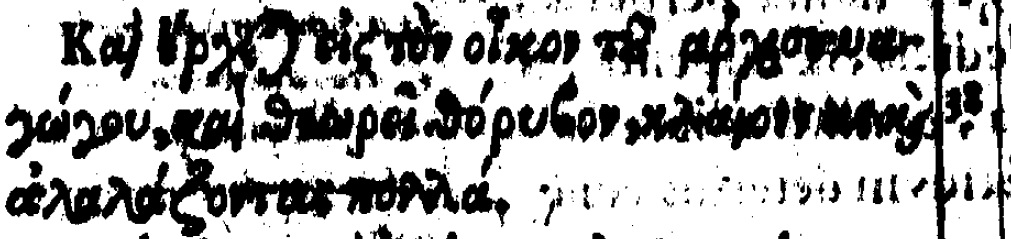 Καὶ ἔρχεται εἰς τὸν οἶκον τοῦ ἀρχισυνα-
γώγου, καὶ θεωρεῖ θόρυβον, κλαίοντας καὶ 38
ἀλαλάζοντας πολλά.